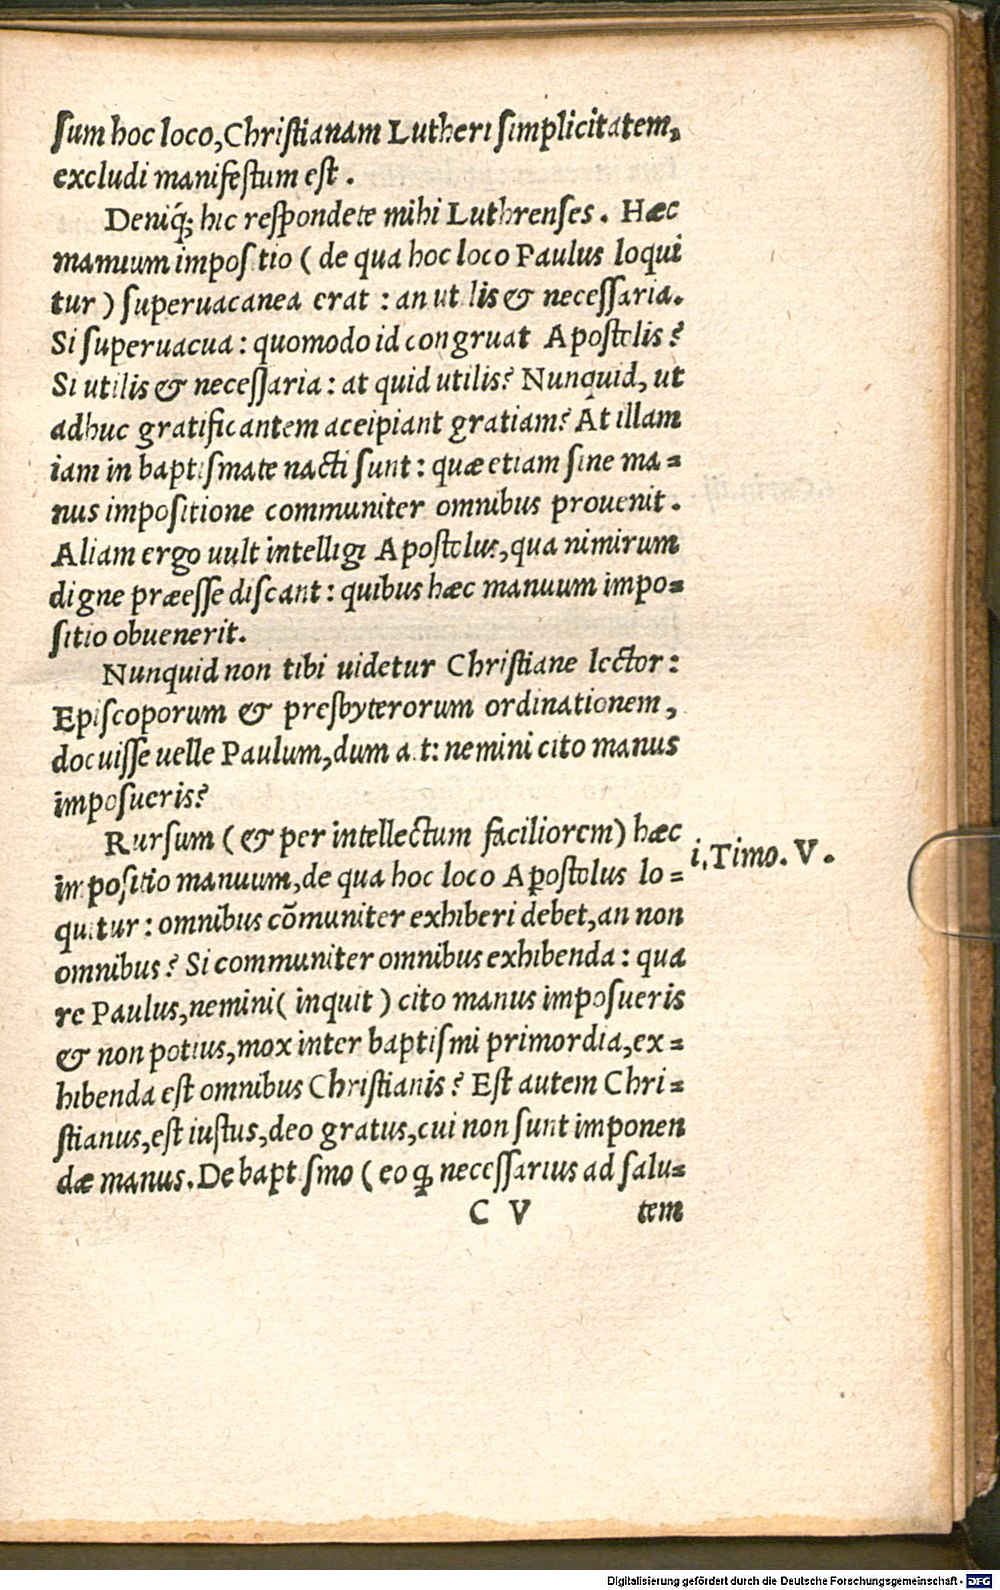 ſum hoc loco, Chriſtianam Lutheri ſimplicitatem,
excludi manifeſtum eſt.
Deniq́; hic reſpondete mihi Luthrenſes. Hæc
manuum impoſitio ( de qua hoc loco Paulus loqui
tur ) ſuperuacanea erat : an utilis & neceſſaria.
Si ſuperuacua : quomodo id congruat Apoſtolis?
Si utilis & neceſſaria : at quid utilis? Nunquid, ut
adhuc gratificantem aceipiant gratiam? At illam
iam in baptiſmate nacti ſunt : quæ etiam ſine ma=
nus impoſitione communiter omnibus prouenit.
Aliam ergo uult intelligi Apoſtolus, qua nimirum
digne præeſſe diſcant : quibus hæc manuum impo=
ſitio obuenerit.
Nunquid non tibi uidetur Chriſtiane lector:
Epiſcoporum & presbyterorum ordinationem,
docuiſſe uelle Paulum, dum ait: nemini cito manus
impoſueris?
Rurſum ( & per intellectum faciliorem) hæc
impoſitio manuum, de qua hoc loco Apoſtolus lo=
quitur : omnibus cōmuniter exhiberi debet, an non
omnibus? Si communiter omnibus exhibenda : qua
re Paulus, nemini ( inquit ) cito manus impoſueris
& non potius, mox inter baptiſmi primordia, ex=
hibenda eſt omnibus Chriſtianis? Eſt autem Chri=
ſtianus, eſt iuſtus, deo gratus, cui non ſunt imponen
dæ manus. De baptiſmo ( eo ꝙ neceſſarius ad ſalu=
C V tem
i. Timo. V.
Digitalisierung gefördert durch die Deutsche Forschungsgemeinschaft - DFG